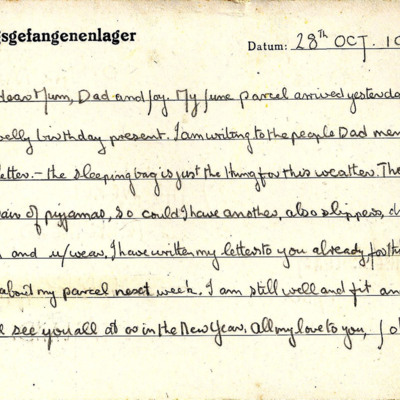 gsgefangenenlager
Datum: 28th OCT. 19
dear Mum, Dad and Joy. My June parcel arrived yesterda
elly birthday present. I am writing to the people Dad men
letter. - the sleeping bag is just the thing for this weather. The
air of pyjamas, so could I have another, also slippers, d
and u/wear. I have written my letters to you already, for th
about my parcel next week. I am still well and fit an
see you all at oo in the New Year. All my love to you, Jo